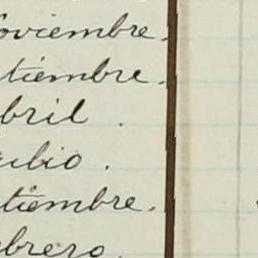 oviembre.
tiembre.
bril .
ulio .
tiembre.
brero.